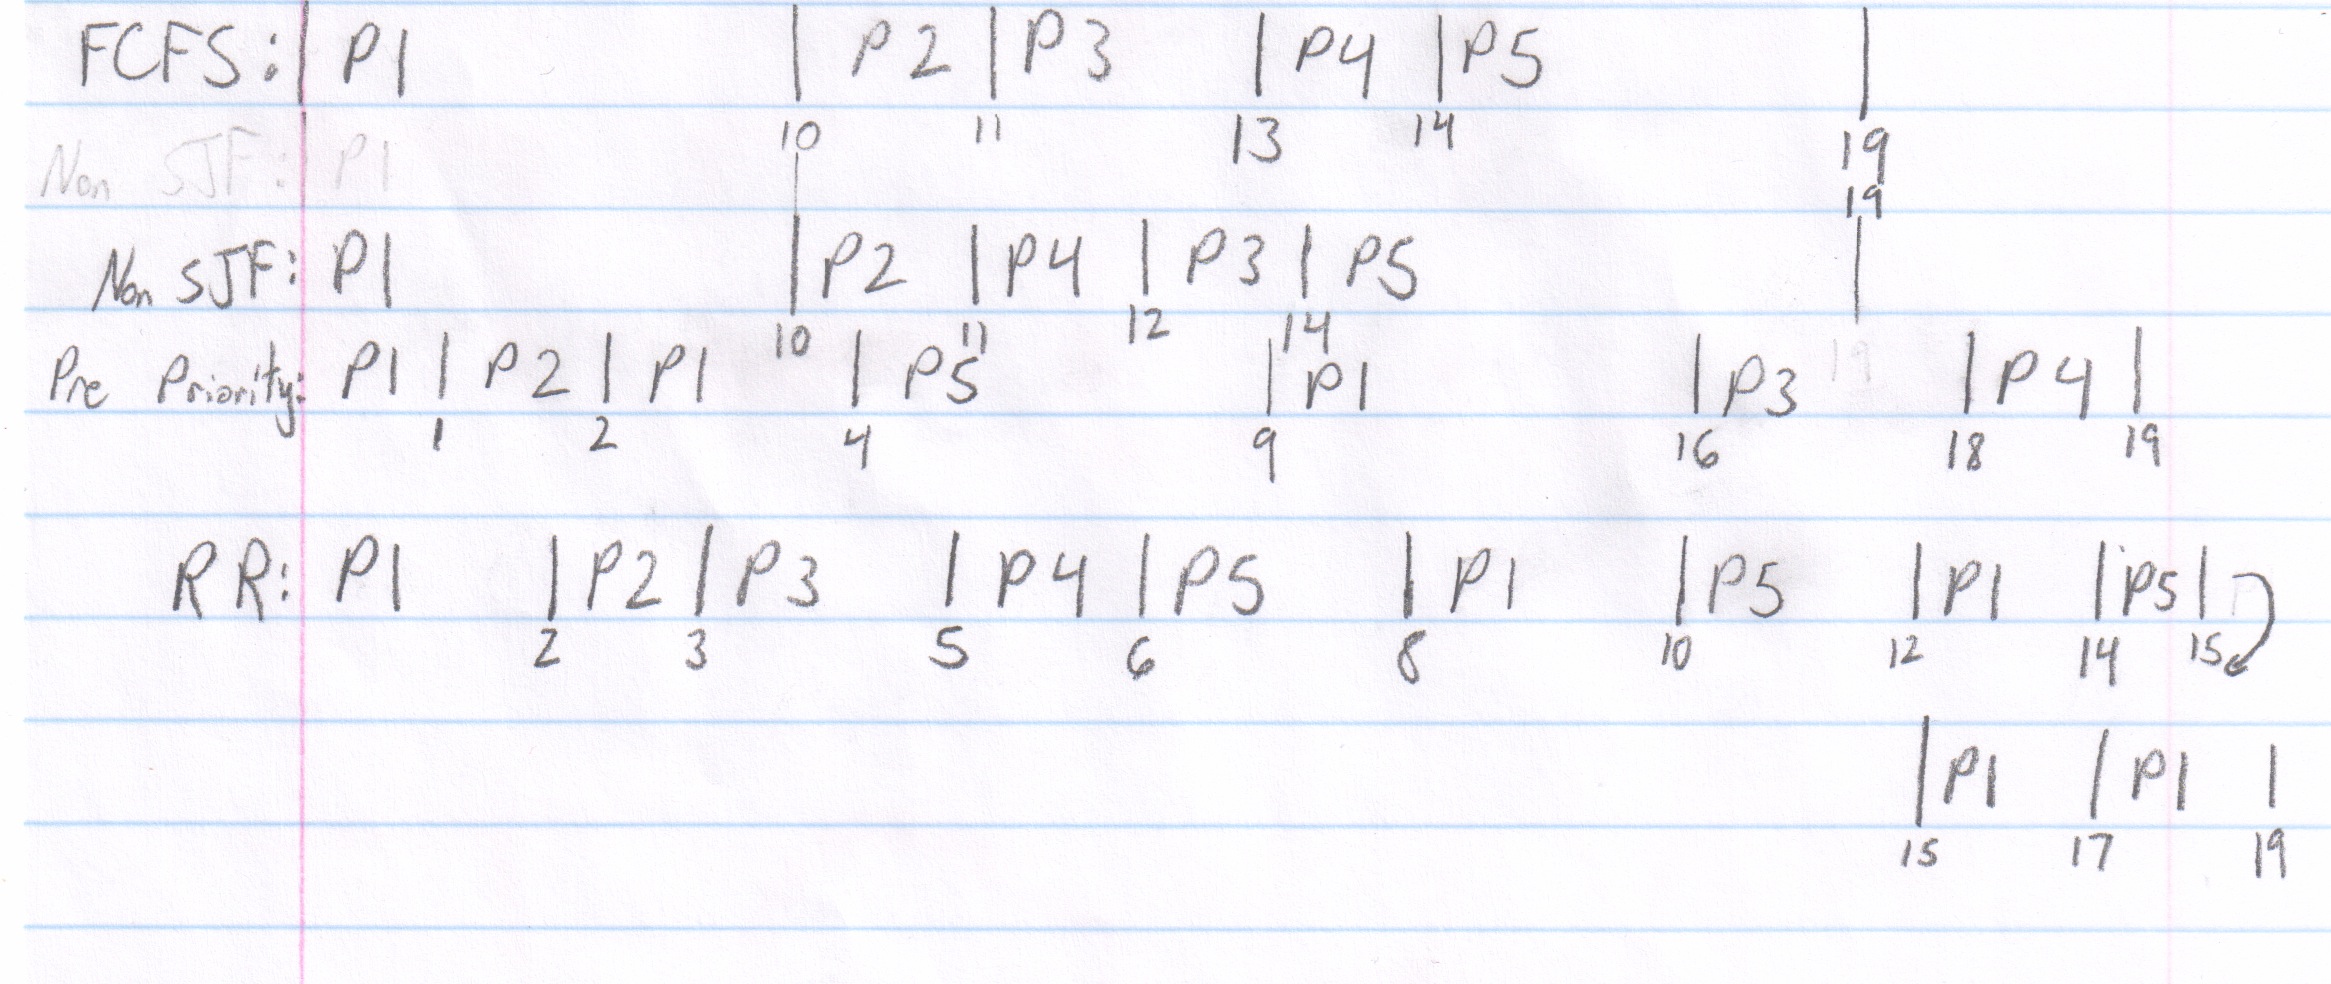 FCFS: | P1 | P2 | P3 | P4 | P5 |
10 11 13 14 19
Non SJF: P1
19
Non SJF: P1 | P2 | P4 | P3 | P5 |
10 11 12 14 19
Pre Priority: P1 | P2 | P1 | P5 | P1 | P3 | P4 |
1 2 4 9 16 18 19
RR: P1 | P2 | P3 | P4 | P5 | P1 | P5 | P1 | P5 |
2 3 5 6 8 10 12 14 15
| P1 | P1 |
15 17 19